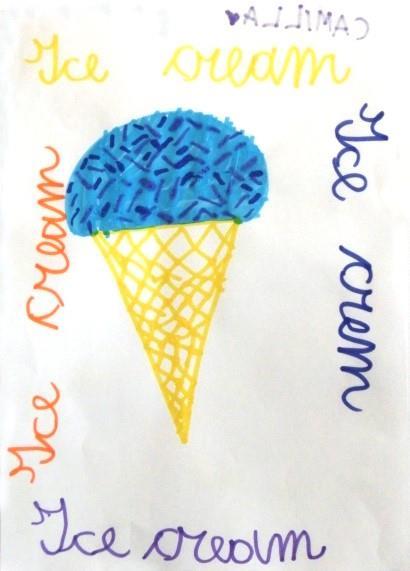 CAMILLA
Ice cream
Ice crem
Ice cream
Ice cream